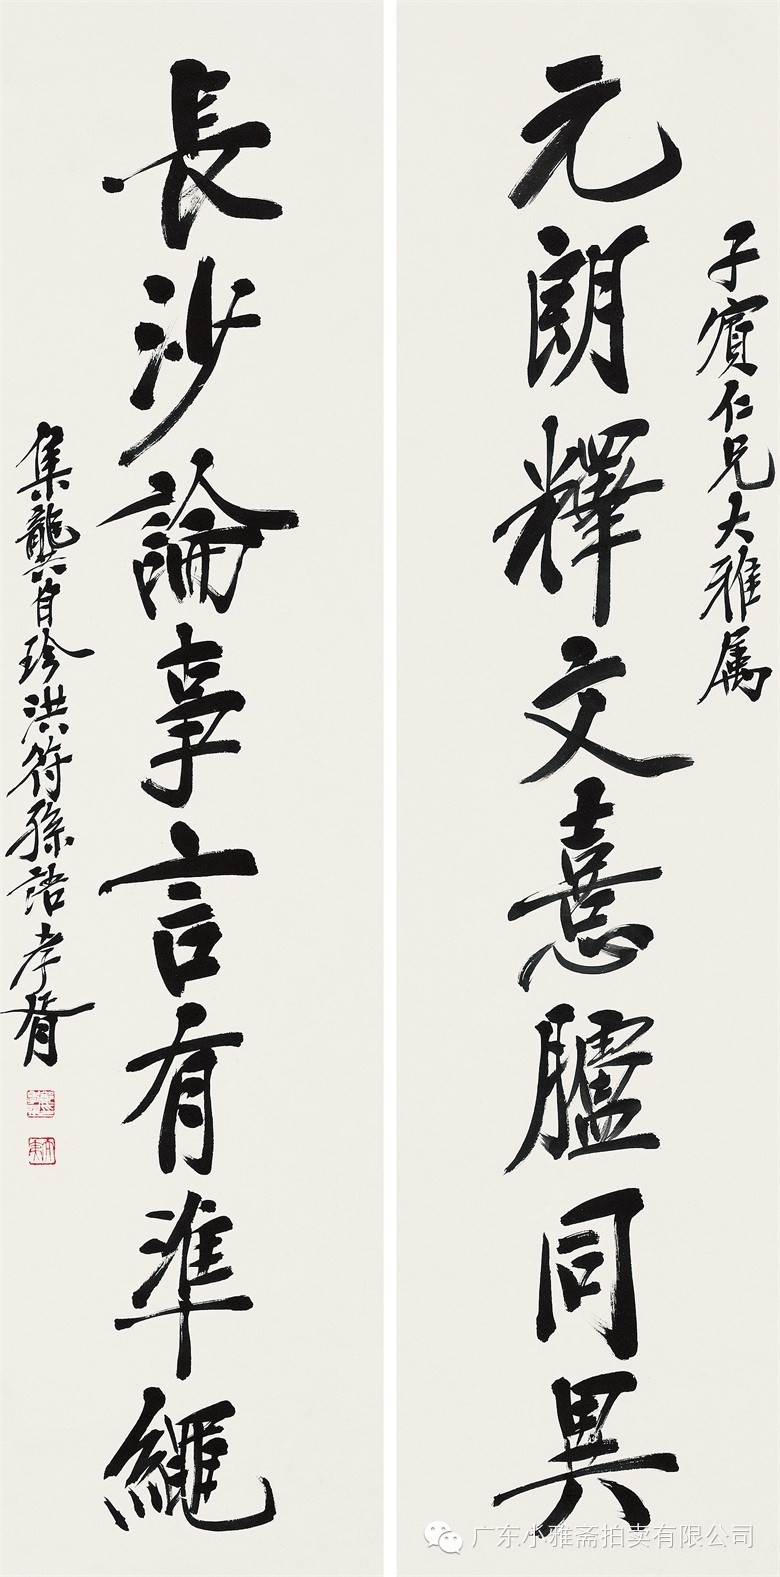 子賓仁兄大雅属
元朗釋文憙臚同異
長沙論事言有準繩
集龔自珍洪符孫語孝胥
广东小雅斋拍卖有限公司